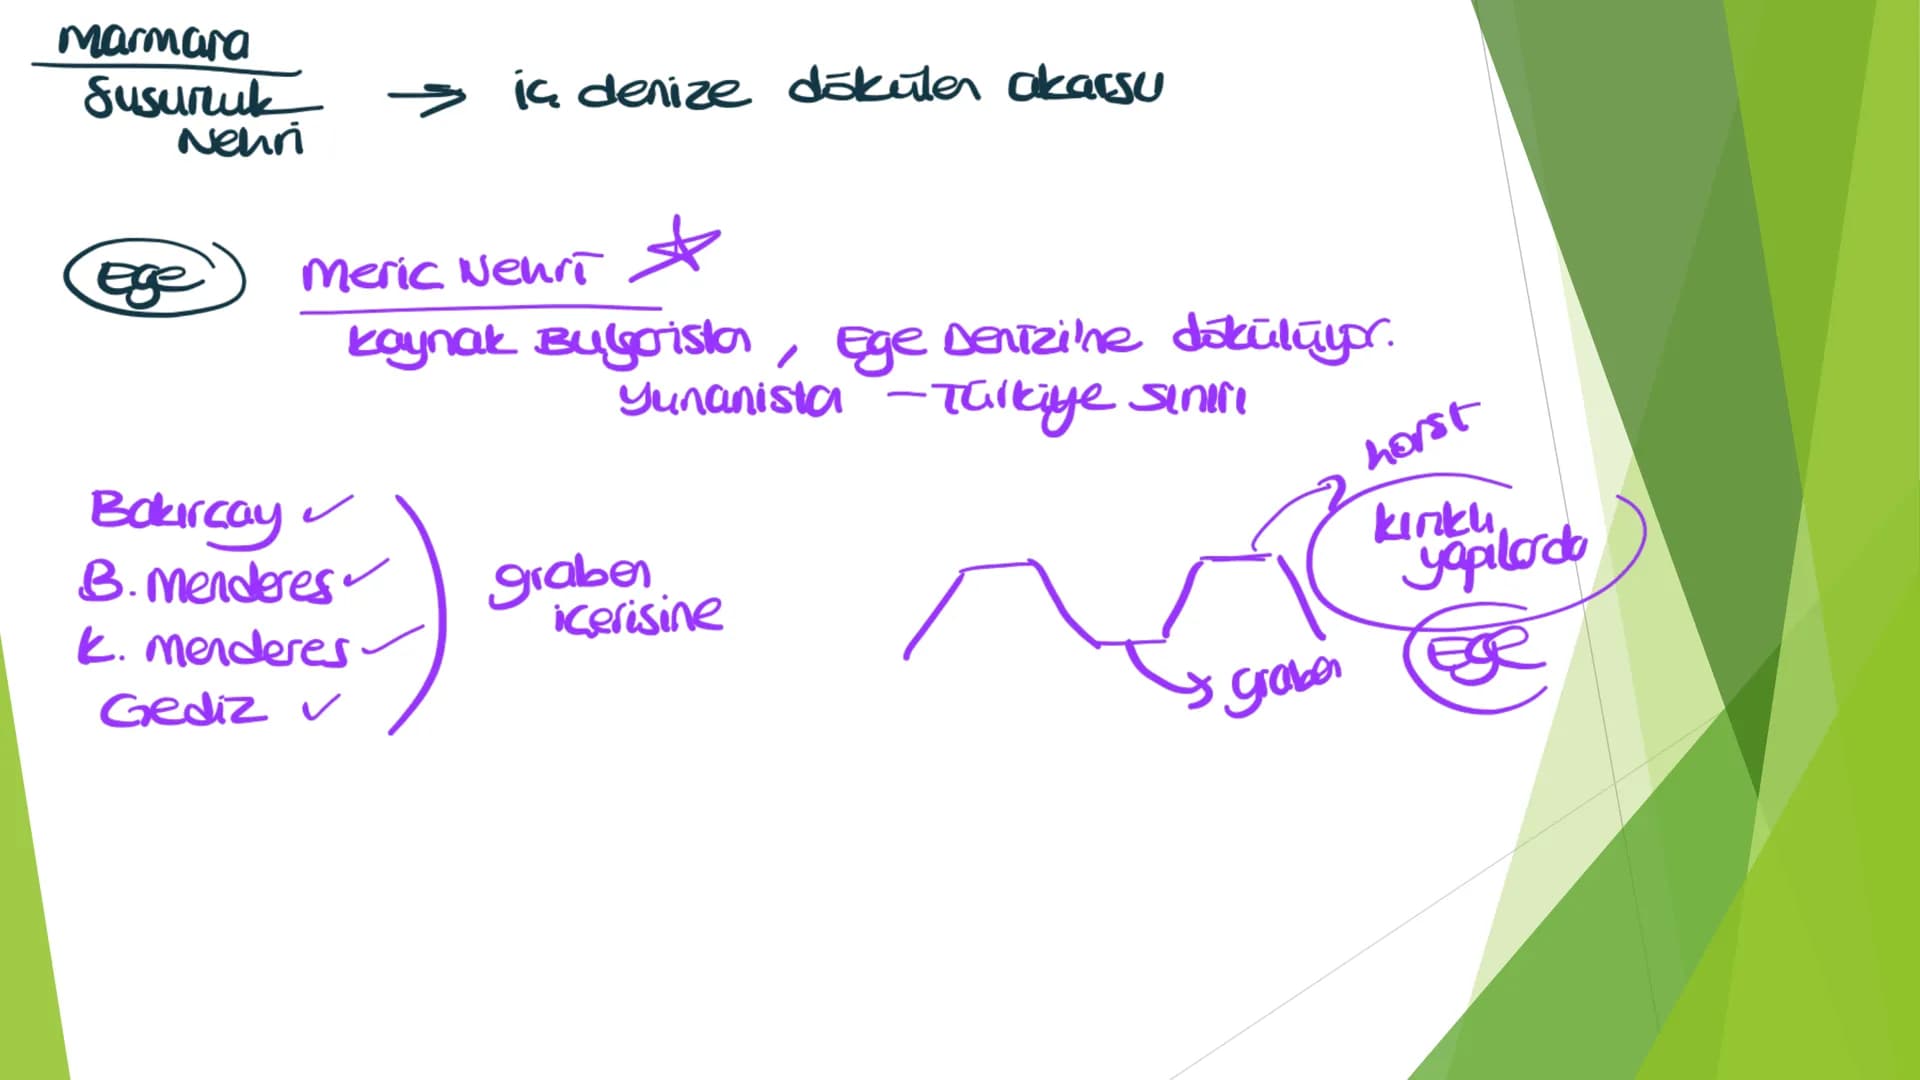 Marmara
Susurluk → iç denize dökülen akarsu
Nehri
Ege
Meric Nehri
kaynak Bulgaristan, Ege Denizi'ne dökülüyor.
Yunanista - Türkiye sınırı
horst
kırıklı
yapılarda
Bakırçay
B. Menderes
K. Menderes
Gediz
graben
içerisine
graben
Ege